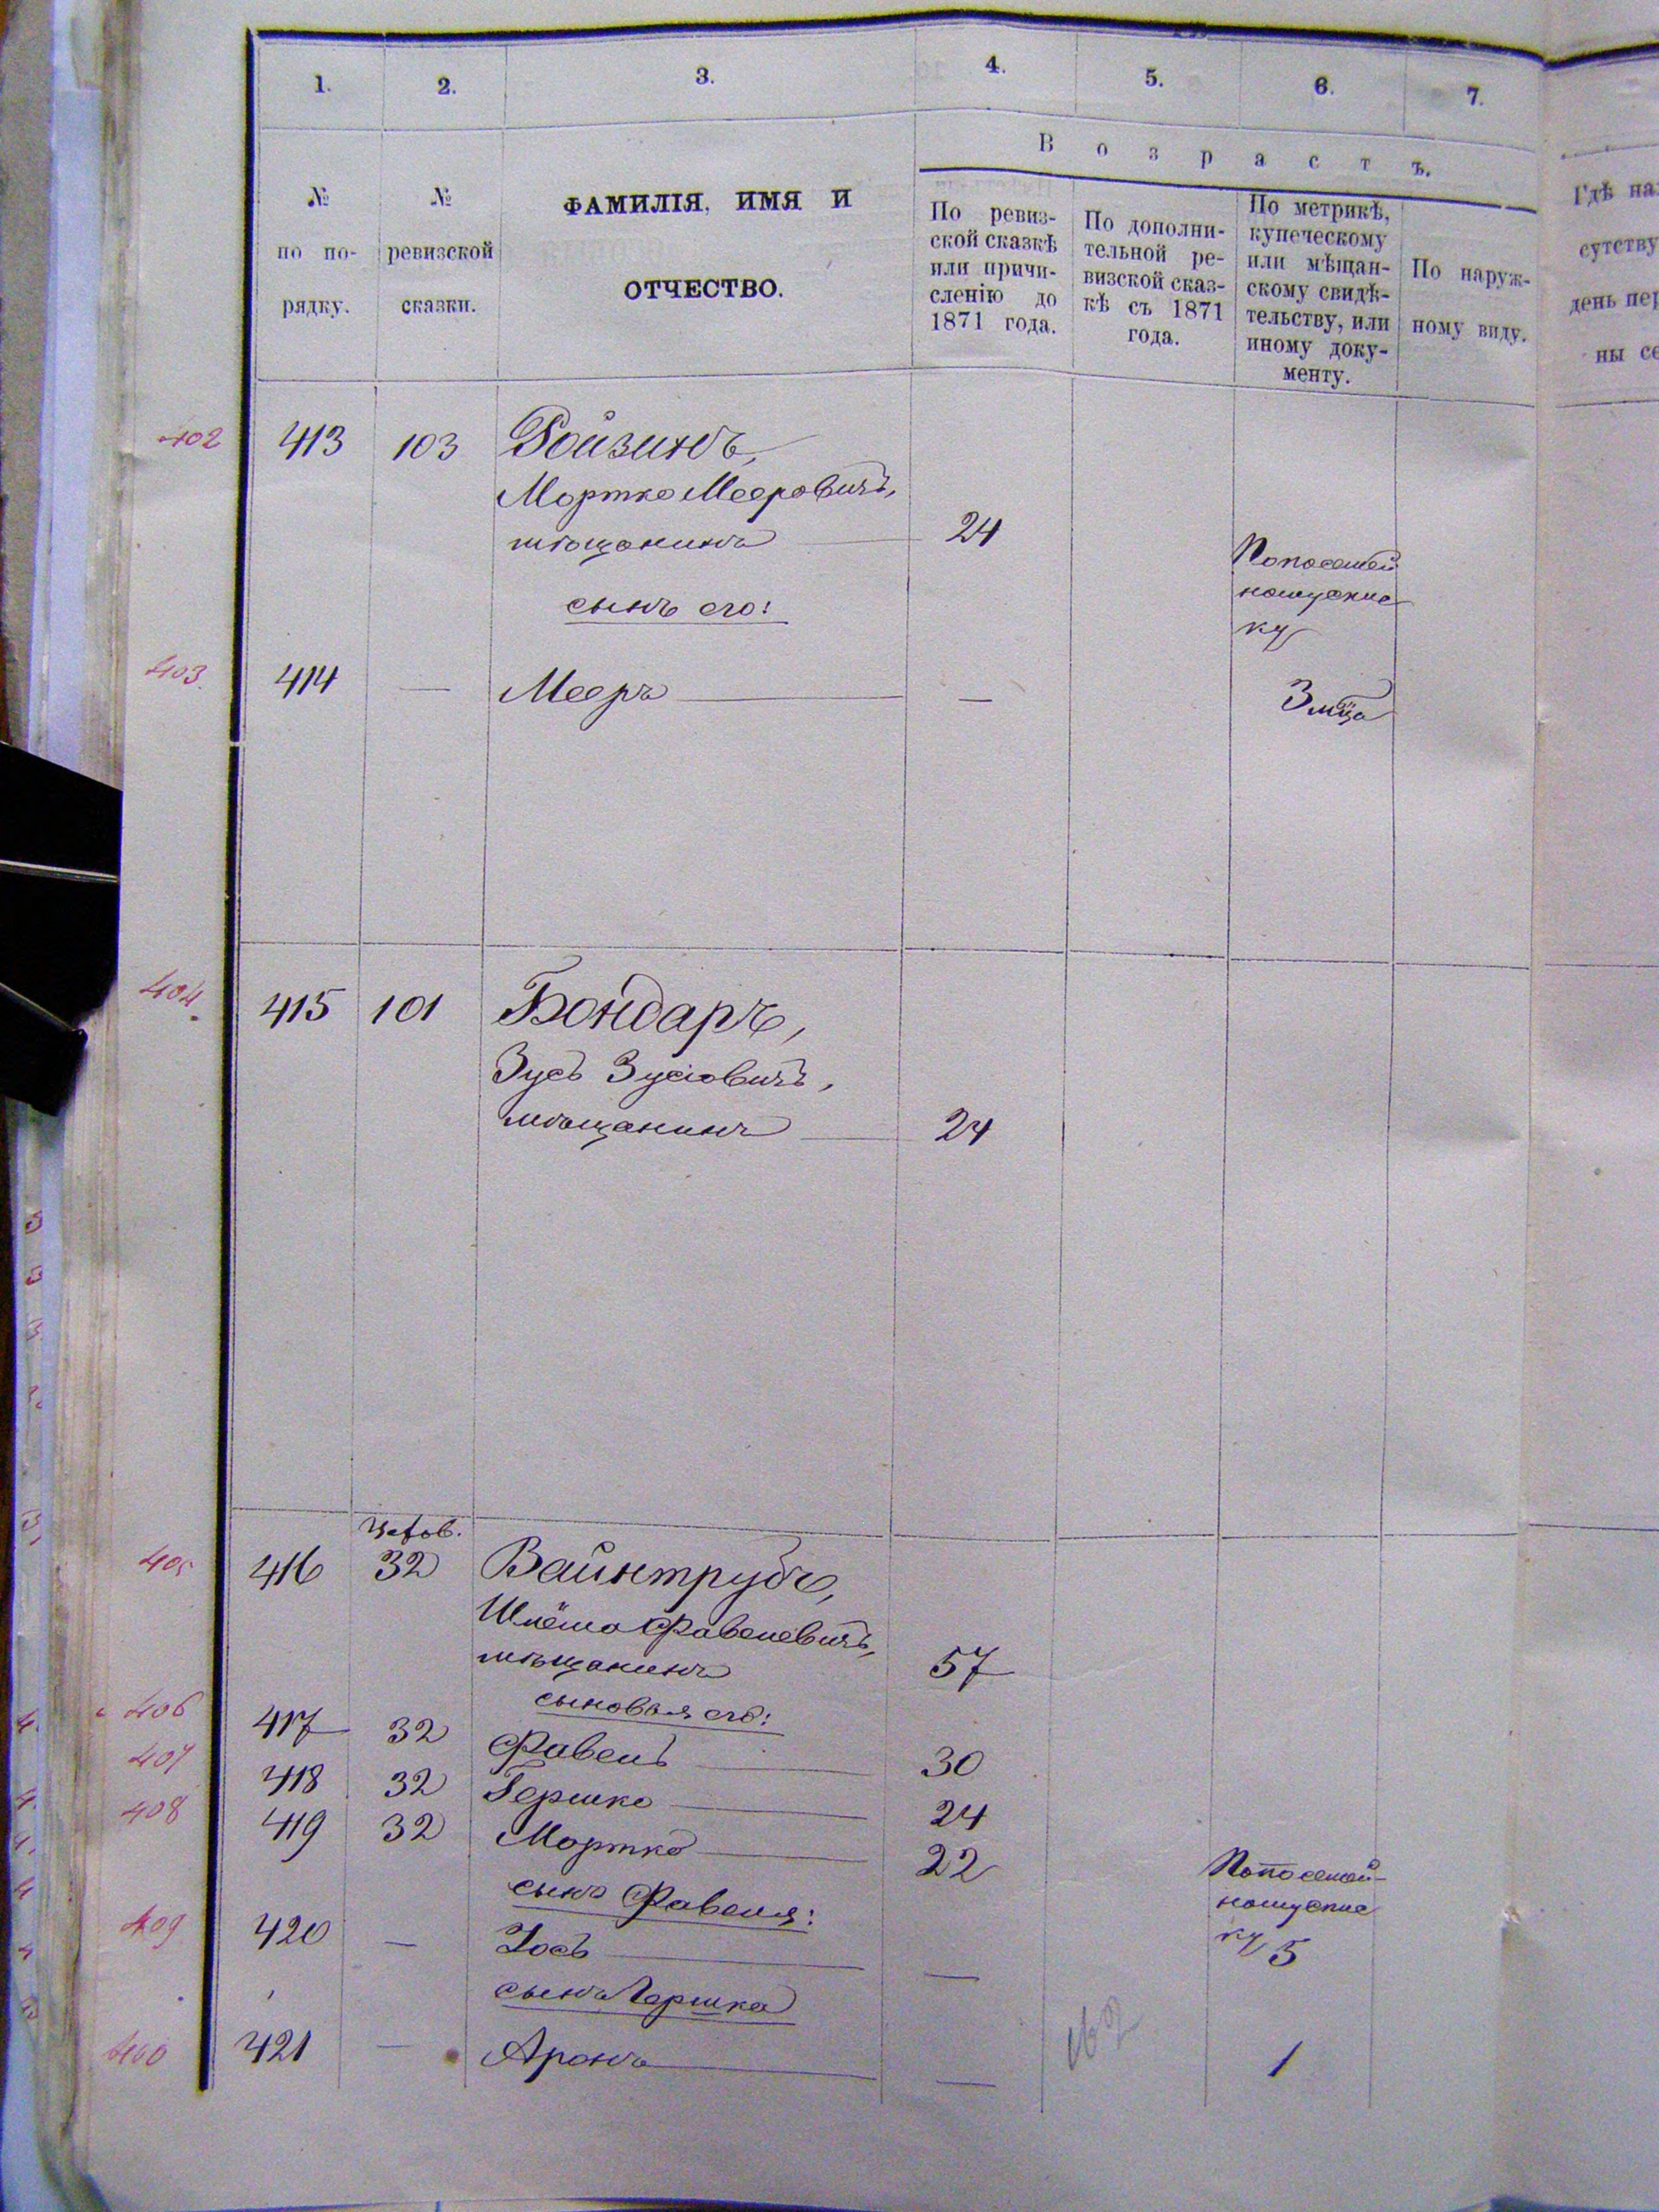 1. 2. 3. 4. 5. 6. 7.
В о з р а с т ъ.
№
по по-
рядку.
№
ревизской
сказки.
ФАМИЛІЯ, ИМЯ И
ОТЧЕСТВО.
По ревиз-
ской сказкѣ
или причи-
сленію до
1871 года.
По дополни-
тельной ре-
визской сказ-
кѣ съ 1871
года.
По метрикѣ,
купеческому
или мѣщан-
скому свидѣ-
тельству, или
иному доку-
менту.
По наруж-
ному виду.
Гдѣ на
сутству
день пер
ны се
402 413 103 Ройзинъ,
Мортко Мееровичъ,
мѣщанинъ 24
По посемей
ному списке
ку
сынъ его:
403 414 — Мееръ — 3 мца
404 415 101 Бондаръ,
Зусь Зусіовичъ,
мѣщанинъ 24
405 416 32 Вайнтрубъ,
Шлёма Фавелевичъ,
мѣщанинъ 57
сыновья его:
406 417 32 Фавель 30
407 418 32 Гершко 24
408 419 32 Мортко 22
По посемей-
ному списке
ку 5
сынъ Фавеля:
409 420 — Іось —
сынъ Гершка
400 421 — Аронъ — 1